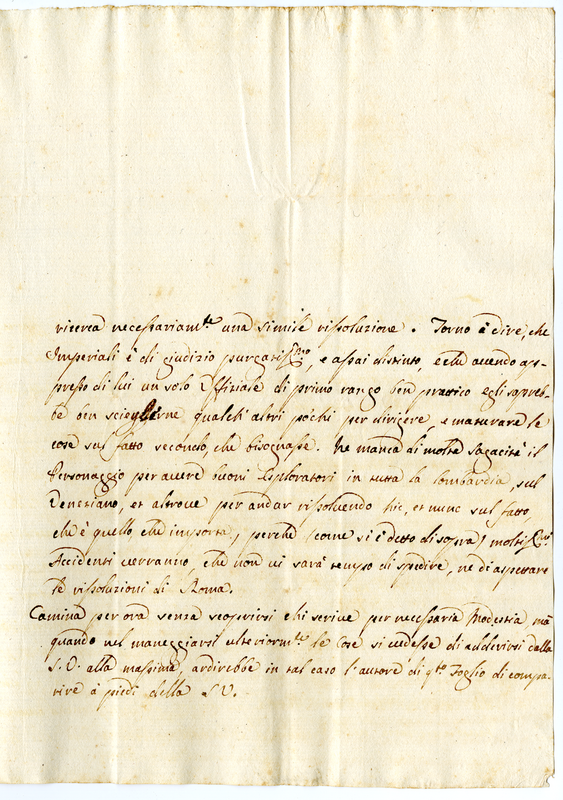 ricerca necessariam.te una simile rissoluzione. Torno à dire, che
Imperiali è di giudizio purgatiss.mo, e assai distinto, e che avendo ap-
presso di lui un solo Offiziale di primo rango ben prattico egli sapreb-
be ben scieglierne qualch'altri pochi per dirigere, e matturare le
cose sul fatto secondo, che bisognasse. Ne manca di molta sagacità il
Personaggio per avere buoni Esploratori in tutta la Lombardia, sul
Veneziano, et altrove per andar rissoluendo hic, et nunc sul fatto
che è quello che importa, perche (come si è detto di sopra) moltiss.mi
Accidenti verranno che non vi sarà tempo di spedire, ne di aspettare
le rissoluzioni di Roma.
Camina per ora senza scoprirsi chi scrive per necessaria Modestia, mà
quando nel maneggiarsi ulteriorm.te le Cose si vedesse di addevirsi dalla
S.V. alla massima, ardirebbe in tal caso l'autore di q.to Foglio di compa-
rire à piedi della S.V.